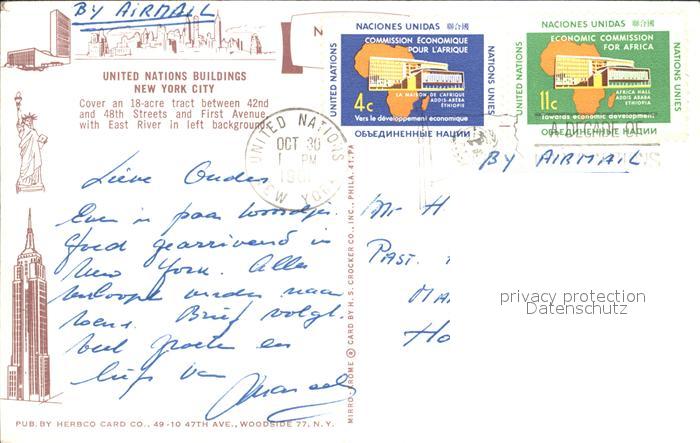 BY AIRMAIL
UNITED NATIONS BUILDINGS
NEW YORK CITY
Cover an 18-acre tract between 42nd
and 48th Streets and First Avenue,
with East River in left background
NACIONES UNIDAS 聯合國
COMMISSION ÉCONOMIQUE
POUR L'AFRIQUE
UNITED NATIONS
NATIONS UNIES
4c
LA MAISON DE L'AFRIQUE
ADDIS-ABÉBA
ETHIOPIE
Vers le développement économique
ОБЪЕДИНЕННЫЕ НАЦИИ
NACIONES UNIDAS 聯合國
ECONOMIC COMMISSION
FOR AFRICA
UNITED NATIONS
NATIONS UNIES
11c
AFRICA HALL
ADDIS ABABA
ETHIOPIA
Towards economic development
ОБЪЕДИНЕННЫЕ НАЦИИ
A DECADE OF
UNITED NATIONS
OCT 30
1 PM
NEW YORK
BY AIRMAIL
Lieve Ouders
Even 'n paar woordjes.
Goed gearriveerd in
New York. Alles
verloopt verder naar
wens. Brief volgt.
veel groeten en
liefs van
Mr H
Past.
Ma
Ho
privacy protection
Datenschutz
MIRRO-KROME ® CARD BY H. S. CROCKER CO., INC., PHILA. 41, PA
PUB. BY HERBCO CARD CO., 49-10 47TH AVE., WOODSIDE 77, N. Y.